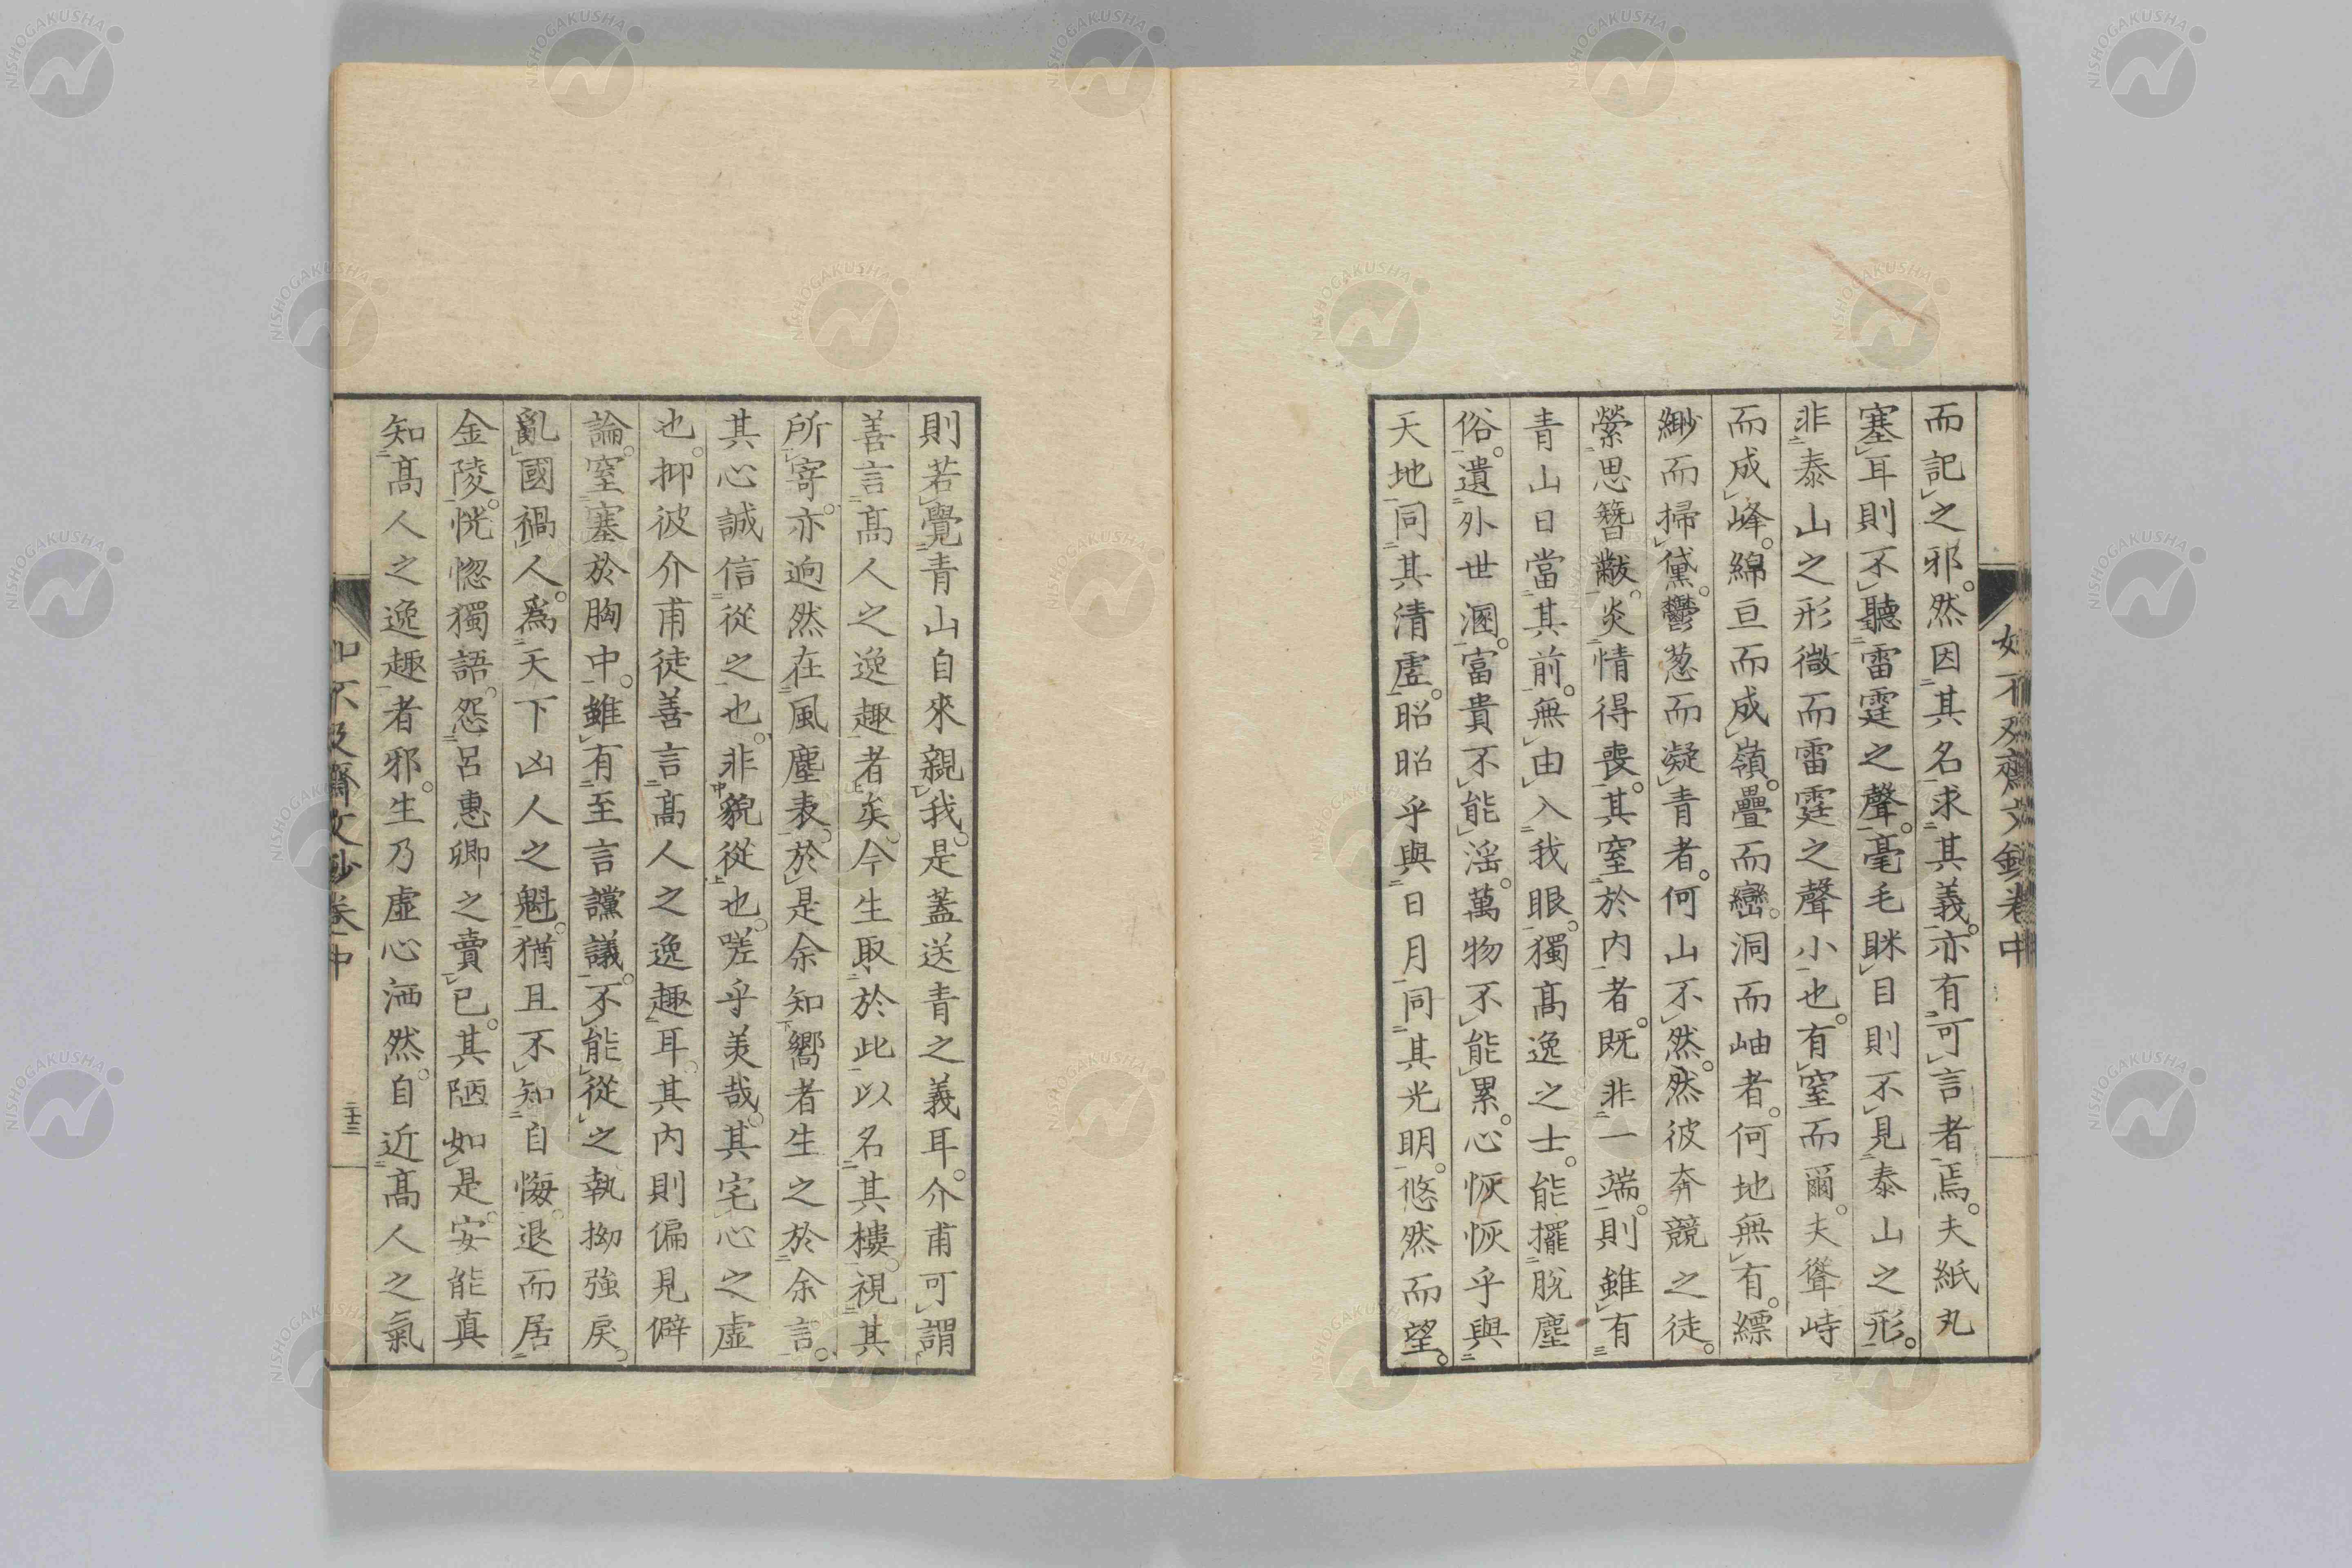 而記之邪。然因其名求其義。亦有可言者焉。夫紙丸
塞耳則不聽雷霆之聲。毫毛眯目則不見泰山之形。
非泰山之形微而雷霆之聲小也。有窒而爾。夫聳峙
而成峰。綿亘而成嶺。疊而巒。洞而岫者。何地無有。縹
緲而掃黛。鬱葱而凝青者。何山不然。然彼奔競之徒。
縈思簪黻。炎情得喪。其窒於内者。既非一端。則雖有
青山日當其前。無由入我眼。獨高逸之士。能擺脫塵
俗。遺外世溷。富貴不能淫。萬物不能累。心恢恢乎與
天地同其清虛。昭昭乎與日月同其光明。悠然而望。
則若覺青山自來親我。是蓋送青之義耳。介甫可謂
善言高人之逸趣者矣。今生取於此以名其樓。視其
所寄。亦逈然在風塵表。於是余知嚮者生之於余言。
其心誠信從之也。非貌從也。嗟乎美哉。其宅心之虛
也。抑彼介甫徒善言高人之逸趣耳。其内則偏見僻
論。窒塞於胸中。雖有至言讜議。不能從之執拗強戾。
亂國禍人。爲天下凶人之魁。猶且不知自悔。退而居
金陵。恍惚獨語。怨呂惠卿之賣已。其陋如是。安能真
知高人之逸趣者邪。生乃虛心洒然。自近高人之氣
如不及齋文鈔卷中
二十三
NISHOGAKUSHA